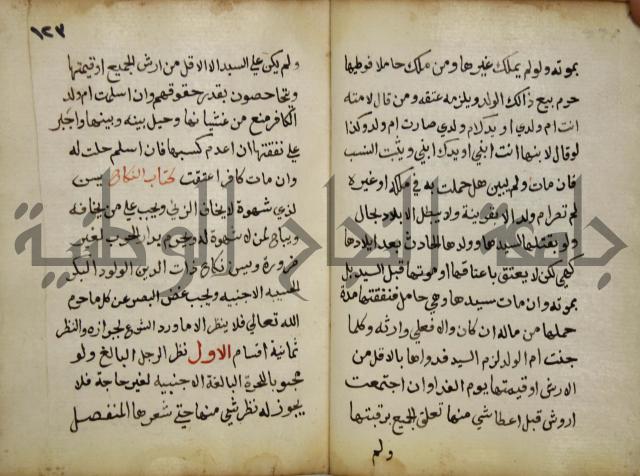 بموته ولو لم يملك غيرها ومن ملك حاملا فوطيها
حرم بيع ذالك الولد ويلزمه عتقه ومن قال لامته
انت ام ولدي او يدك ام ولدي صارت ام ولد وكذا
لو قال لابنها انت ابني او يدك ابني ويثبت النسب
فان مات ولم يبين هل حملت به في ملكه او غيره
لم تصر ام ولد الا بقرينة ولا يبطل الايلاد بحال
ولو بقتلها لسيدها وولدها الحادث بعد ايلادها
كهي لكن لا يعتق باعتاقها او موتها قبل السيد بل
بموته وان مات سيدها وهي حامل فنفقتها مدة
حملها من ماله ان كان والا فعلي وارثه وكلما
جنت ام الولد لزم السيد فداوها بالاقل من
الارش او قيمتها يوم الفدا وان اجتمعت
اروش قبل اعطا شي منها تعلق الجميع برقبتها
ولم
١٢٣
ولم يكن علي السيد الا الاقل من ارش الجميع او قيمتها
ويتحاصون بقدر حقوقهم وان اسلمت ام ولد
الكافر منع من غشيانها وحيل بينه وبينها واجبر
علي نفقتها ان اعدم كسبها فان اسلم حلت له
وان مات كافرا عتقت كتاب النكاح يسن
لذي شهوة لا يخاف الزني ويجب علي من يخافه
ويباح لمن لا شهوة له ويحرم بدار الحرب لغير
ضرورة ويسن نكاح ذات الدين الولود البكر
الحسيبه الاجنبيه ويجب غض البصر عن كل ما حرم
الله تعالي فلا ينظر الا ما ورد الشرع بجوازه والنظر
ثمانية اقسام الاول نظر الرجل البالغ ولو
مجبوبا للحرة البالغة الاجنبيه لغير حاجة فلا
يجوز له نظر شي منها حتي شعرها المنفصل
جامعة النجاح الوطنية